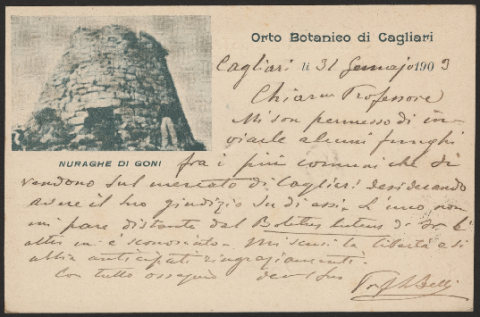 Orto Botanico di Cagliari
Cagliari li 31 Gennajo 1903
Chiar.mo Professore
Mi son permesso di in-
viarle alcuni funghi
NURAGHE DI GONI
fra i più comuni che si
vendono sul mercato di Cagliari desiderando
avere il suo giudizio su di essi. L'uno non
mi pare distante dal Boletus luteus di L'
altro m'è sconosciuto. Mi scusi la libertà e si
abbia anticipati ringraziamenti.
Con tutto ossequio dev. Suo
Belli